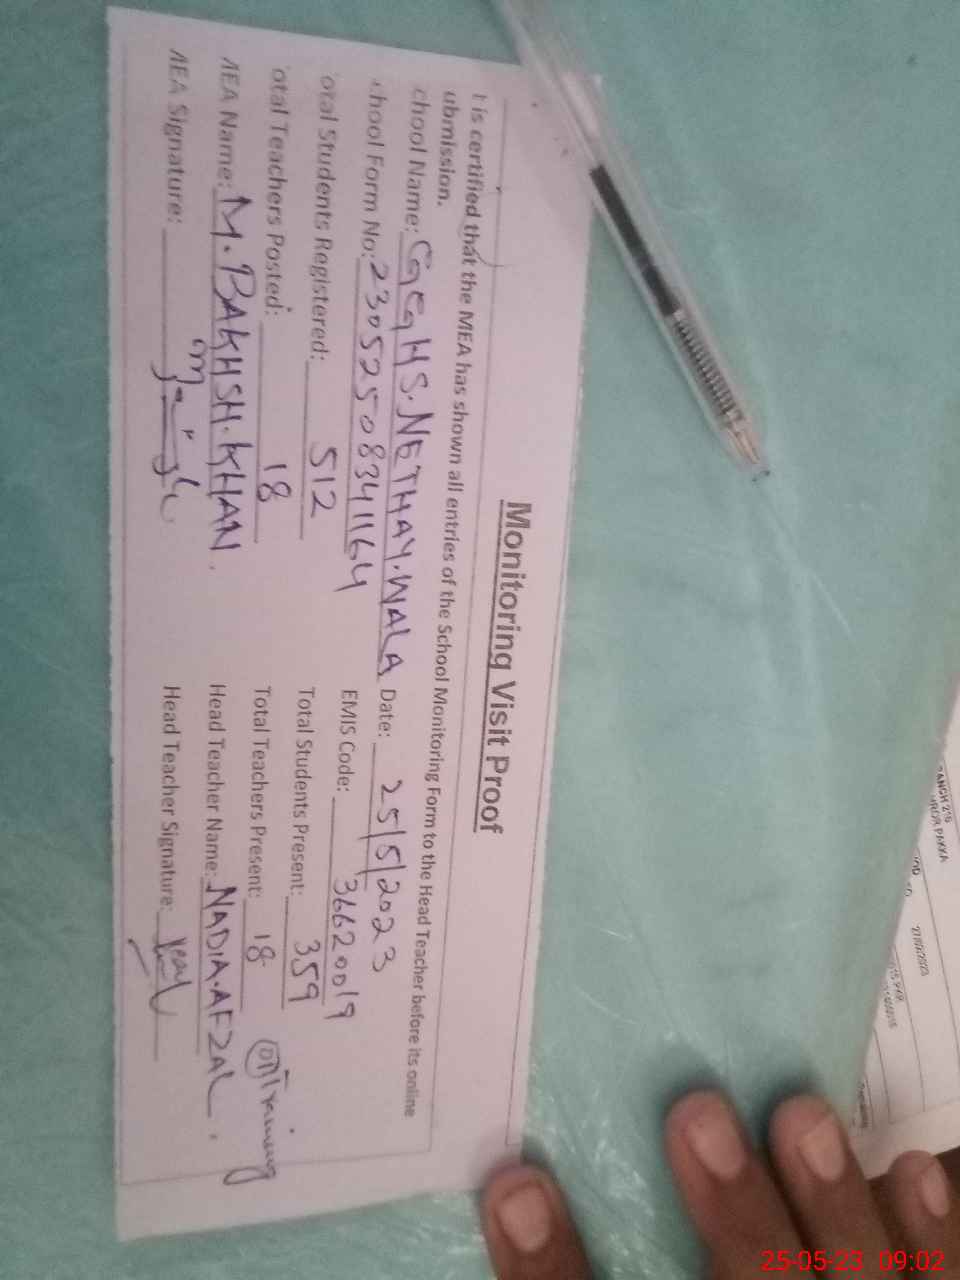 Monitoring Visit Proof
t is certified that the MEA has shown all entries of the School Monitoring Form to the Head Teacher before its online
ubmission.
chool Name: GGHS.NETHAY.WALA Date: 25/5/2023
chool Form No: 23052508341164 EMIS Code: 36620019
otal Students Registered: 512 Total Students Present: 359
otal Teachers Posted: 18 Total Teachers Present: 18 on Training
MEA Name: M.BAKHSH.KHAN. Head Teacher Name: NADIA.AFZAL.
MEA Signature: Head Teacher Signature:
ANCH 216
27/03/2023
25-05-23 09:02